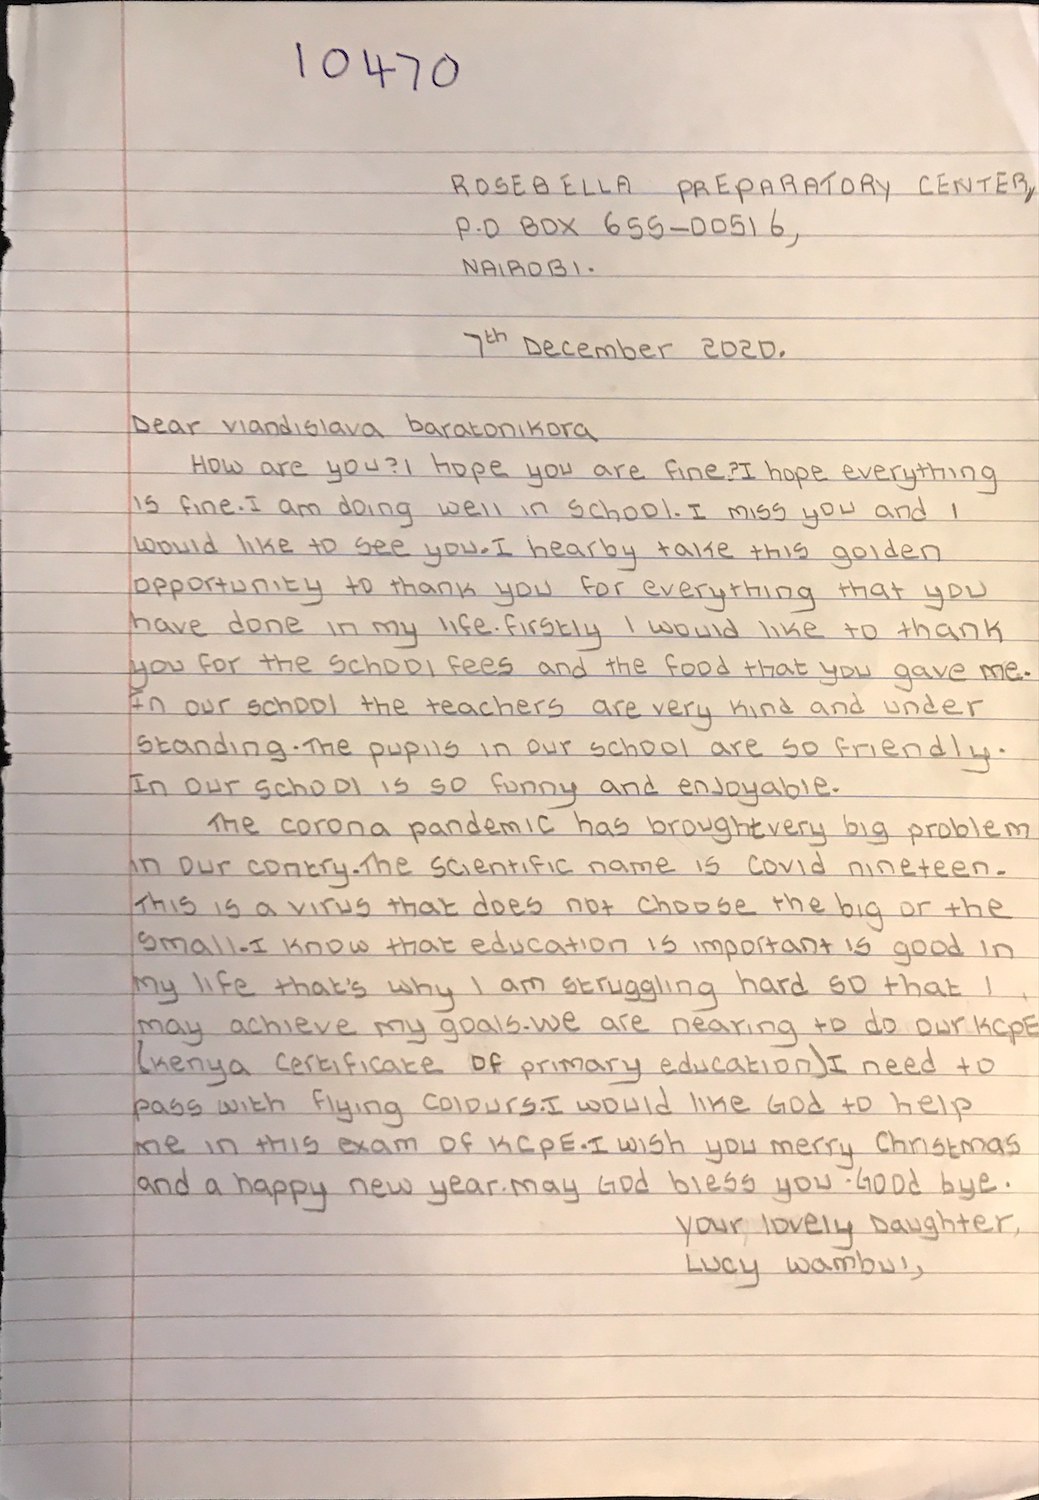 10470
ROSEBELLA PREPARATORY CENTER,
P.O BOX 655-00516,
NAIROBI.
7th December 2020.
Dear viandislava baratonikora
How are you?I hope you are fine?I hope everything
is fine.I am doing well in school.I miss you and I
would like to see you.I hearby take this golden
opportunity to thank you for everything that you
have done in my life.firstly I would like to thank
you for the school fees and the food that you gave me.
In our school the teachers are very kind and under
standing.The pupils in our school are so friendly.
In our school is so funny and enjoyable.
The corona pandemic has brought very big problem
in our contry.The scientific name is Covid nineteen.
This is a virus that does not choose the big or the
small.I know that education is important is good in
my life that's why I am struggling hard so that I
may achieve my goals.we are nearing to do our KCPE
(kenya certificate of primary education)I need to
pass with flying colours.I would like God to help
me in this exam of KCPE.I wish you merry Christmas
and a happy new year.may God bless you.Good bye.
your lovely Daughter,
Lucy wambui,